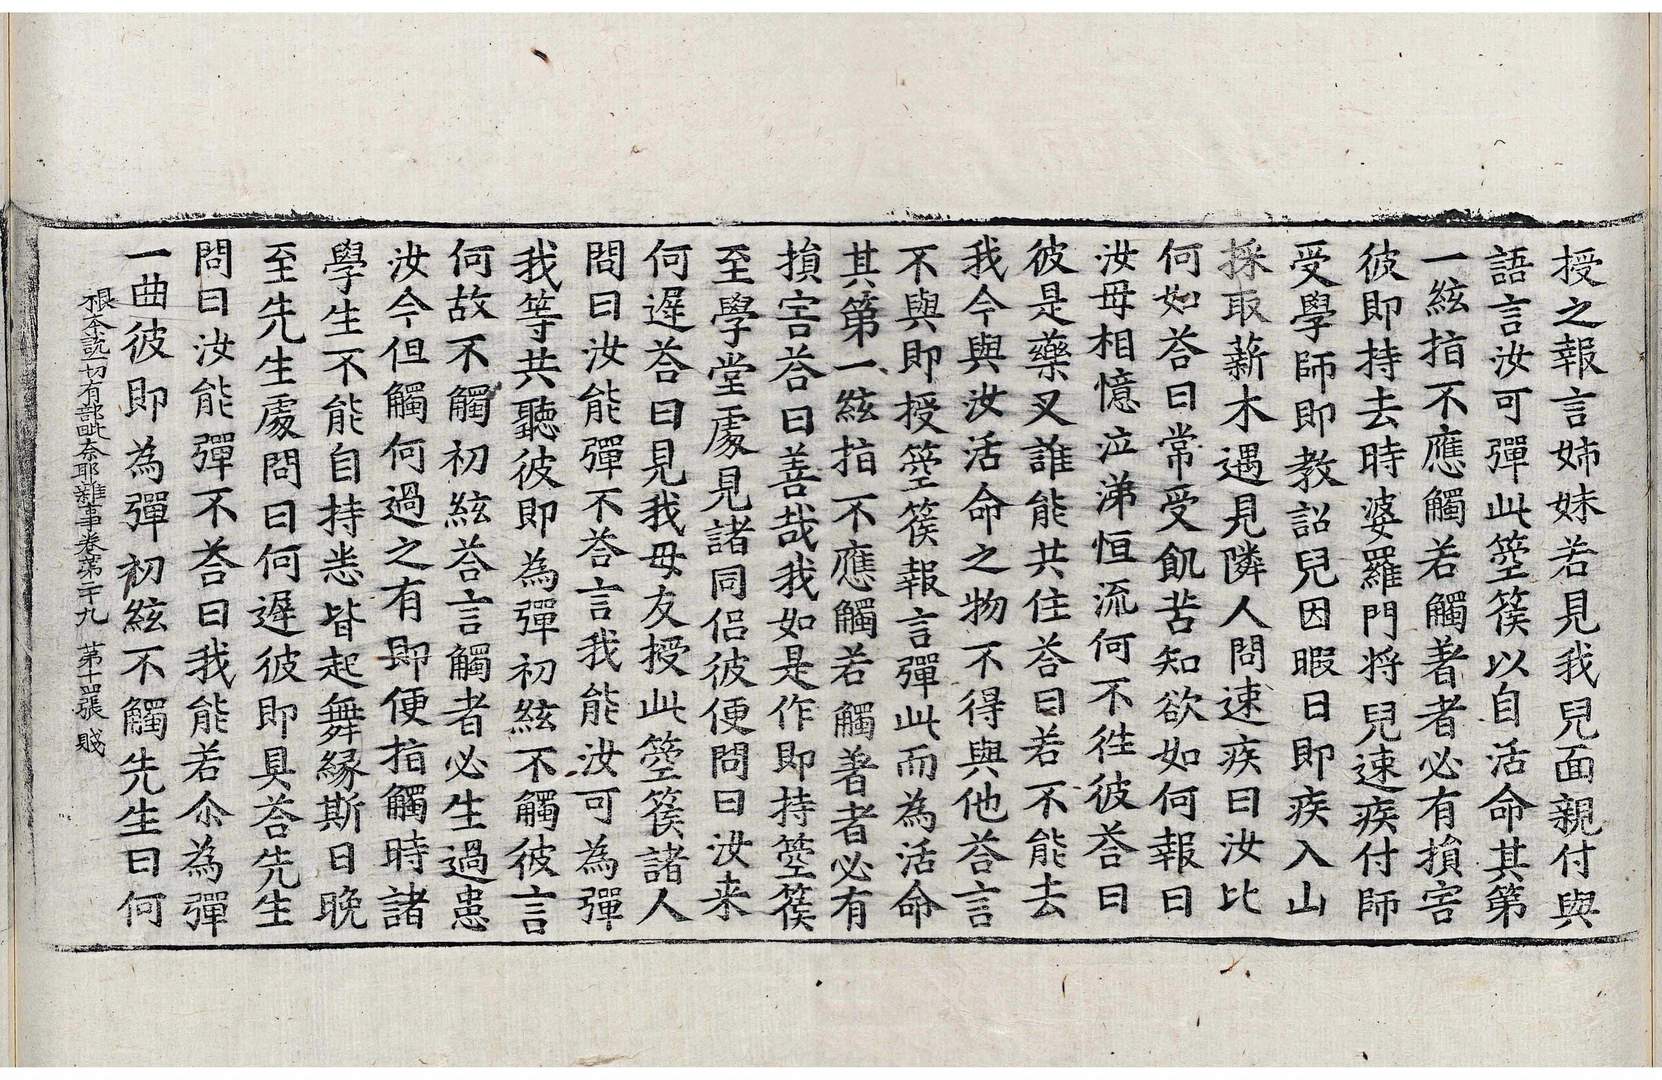 授之報言姉妹若見我兒面親付與
語言汝可彈此箜篌以自活命其第
一絃指不應觸若觸著者必有損害
彼即持去時婆羅門将兒速疾付師
受學師即教詔兒因暇日即疾入山
採取薪木遇見隣人問速疾曰汝比
何如荅曰常受飢苦知欲如何報曰
汝母相憶泣涕恒流何不徃彼荅曰
彼是藥叉誰能共住荅曰若不能去
我今與汝活命之物不得與他荅言
不與即授箜篌報言彈此而為活命
其第一絃指不應觸若觸著者必有
損害荅曰善哉我如是作即持箜篌
至學堂處見諸同侣彼便問曰汝来
何遲荅曰見我母友授此箜篌諸人
問曰汝能彈不荅言我能汝可為彈
我等共聽彼即為彈初絃不觸彼言
何故不觸初絃荅言觸者必生過患
汝今但觸何過之有即便指觸時諸
學生不能自持悉皆起舞縁斯日晚
至先生處問曰何遲彼即具荅先生
問曰汝能彈不荅曰我能若尒為彈
一曲彼即為彈初絃不觸先生曰何
根本說一切有部毗奈耶雜事卷第二十九　第十四張　賤